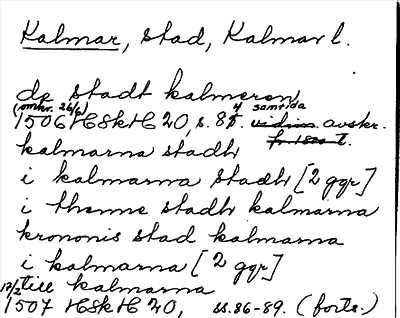 Kalmar, stad, Kalmar l.
de stadt kalmeren
(omkr. 26/6) samtida
1506 HSkH 20, s. 85. avskr.
kalmarna stadh
i kalmarna stadh [2 ggr]
i thenne stadh kalmarna
krononis stad kalmarna
i kalmarna [2 ggr]
till kalmarna
17/2
1507 HSkH 20, ss. 86-89. (forts.)